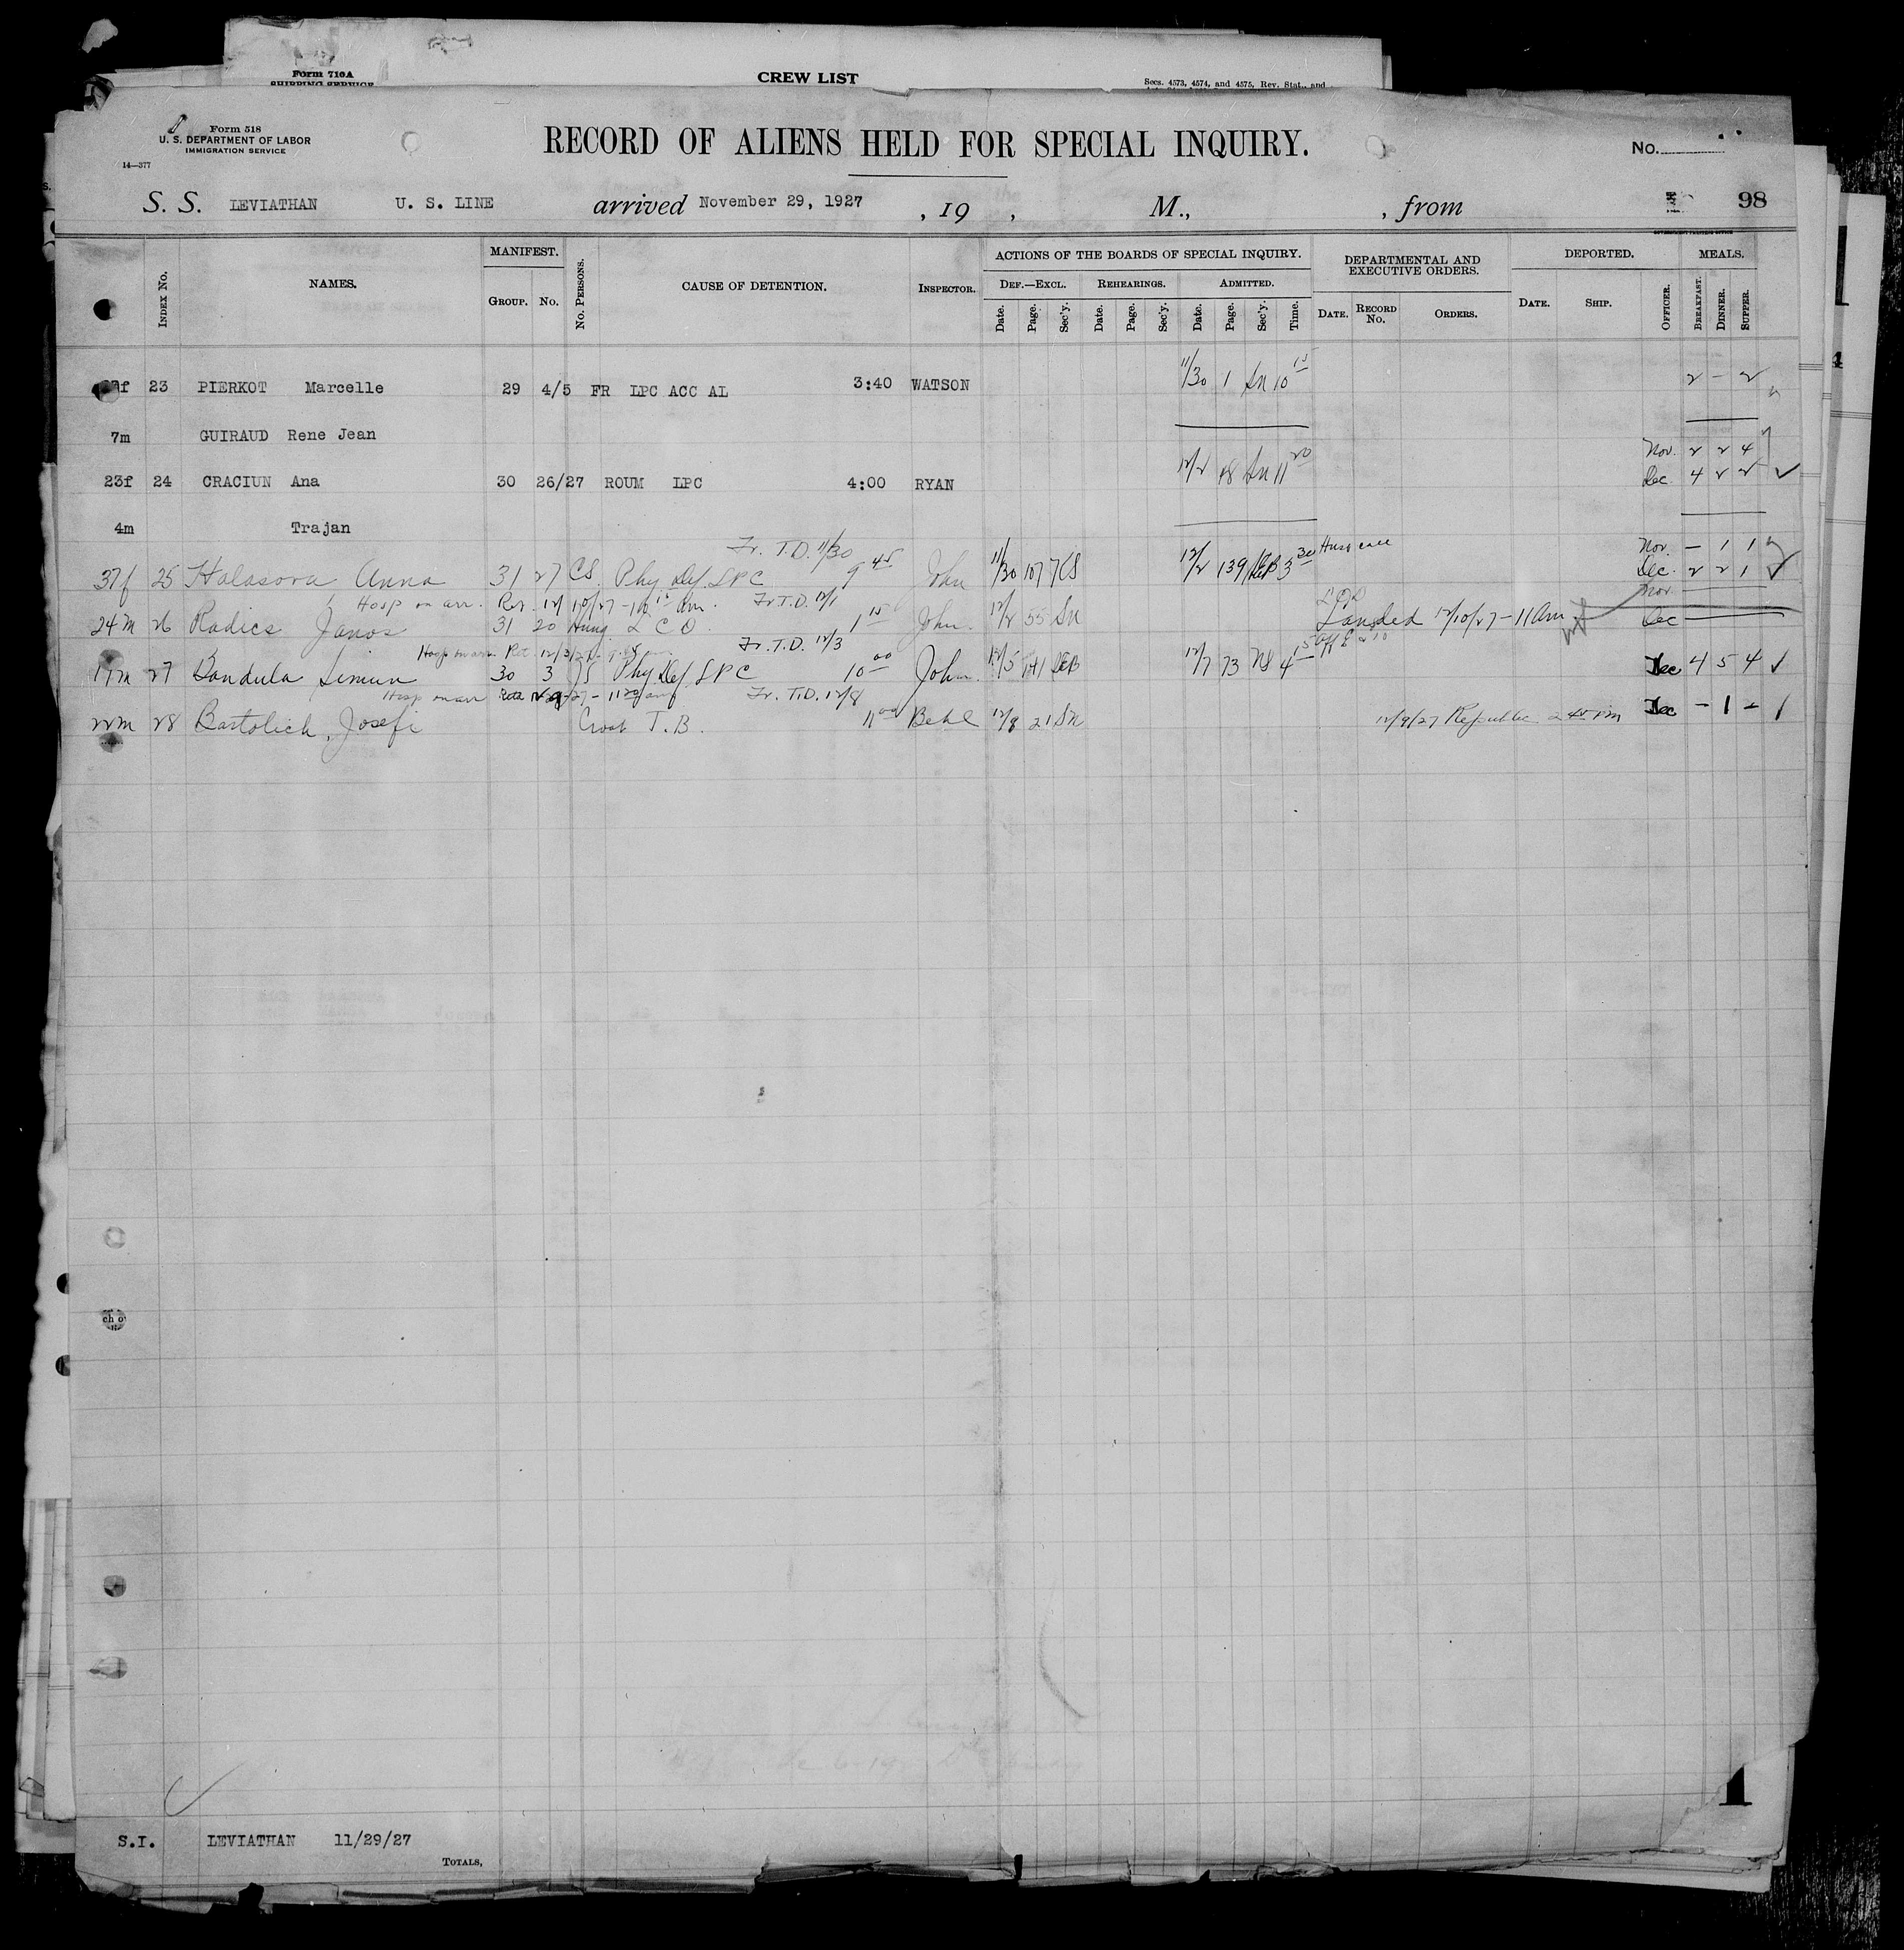 Form 716A
SHIPPING SERVICE
CREW LIST
Secs. 4573, 4574, and 4575, Rev. Stat., and
Form 518
U. S. DEPARTMENT OF LABOR
IMMIGRATION SERVICE
14—377
RECORD OF ALIENS HELD FOR SPECIAL INQUIRY.
No.
S. S. LEVIATHAN U. S. LINE arrived November 29, 1927 , 19 , M., , from 98
INDEX No. NAMES. MANIFEST. GROUP. No. No. PERSONS. CAUSE OF DETENTION. INSPECTOR. ACTIONS OF THE BOARDS OF SPECIAL INQUIRY. DEF.—EXCL. Date. Page. Sec'y. REHEARINGS. Date. Page. Sec'y. ADMITTED. Date. Page. Sec'y. Time. DEPARTMENTAL AND EXECUTIVE ORDERS. DATE. RECORD No. ORDERS. DEPORTED. DATE. SHIP. OFFICER. MEALS. BREAKFAST. DINNER. SUPPER.
23 PIERKOT Marcelle 29 4/5 FR LPC ACC AL 3:40 WATSON 11/30 1 Sn 10 15 2 - 2
7m GUIRAUD Rene Jean
Nov. 2 2 4
23f 24 CRACIUN Ana 30 26/27 ROUM LPC 4:00 RYAN 12/2 18 Sn 11 20 Dec. 4 2 2
4m Trajan
Fr. T.D. 11/30 Nov. - 1 1
37f 25 Halasova Anna 31 27 CS. Phy Def LPC 9 45 John 11/30 107 CS 12/2 139 3 30 Dec. 2 2 1
Hosp on arr. 12/10/27 - 10 15 am. Fr T.D. 12/1 Nov.
24m 26 Radics Janos 31 20 Hung. L C D. 1 15 John. 12/2 55 Sn Landed 12/10/27 - 11 Am Dec
Hosp on arr Ret. 12/3/27 Fr. T.D. 12/3
17m 27 Bandula Simun 30 3 JS Phy Def LPC 10 00 John 12/5 141 12/7 73 NS 4 15 Dec 4 5 4
Hosp on arr 27 - 11 20 am Fr. T.D. 12/8
22m 28 Bartolich, Josefi Croat T.B. 11 00 Behl 12/8 21 Sn 12/9/27 Republic 2 45 PM Dec - 1 -
S.I. LEVIATHAN 11/29/27
TOTALS,
1